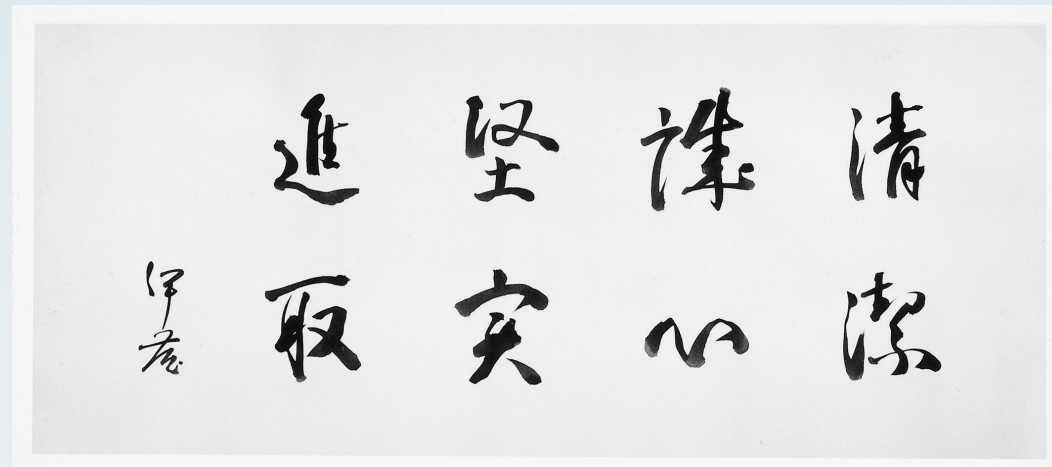 清潔
誠心
堅実
進取
伊